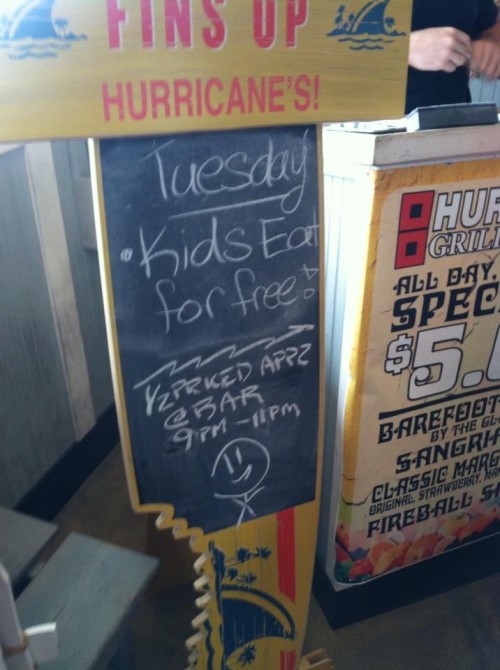 FINS UP
HURRICANE'S!
Tuesday
• Kids Eat
for free!
1/2 PRKED APPZ
@ BAR
9PM-11PM
HUR
GRILL
ALL DAY
SPEC
$5.
BAREFOOT
BY THE GL
SANGRI
CLASSIC MARG
ORIGINAL, STRAWBERRY, MA
FIREBALL S